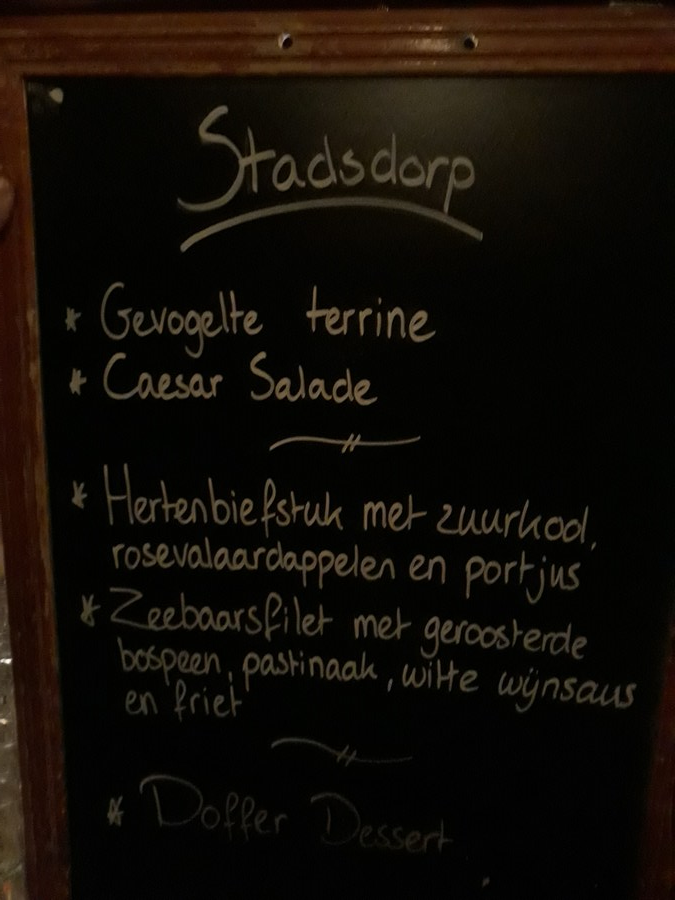 Stadsdorp
* Gevogelte terrine
* Caesar Salade
* Hertenbiefstuk met zuurkool,
rosevalaardappelen en portjus
* Zeebaarsfilet met geroosterde
bospeen, pastinaak, witte wijnsaus
en friet
* Doffer Dessert